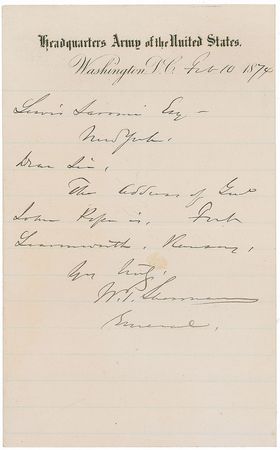 Headquarters Army of the United States.
Washington, D.C. Feb 10 1874
Lewis Esq -
New York.
Dear Sir,
The Address of Genl
John Pope is, Fort
Leavenworth, Kansas,
Yrs truly,
W. T. Sherman
General.